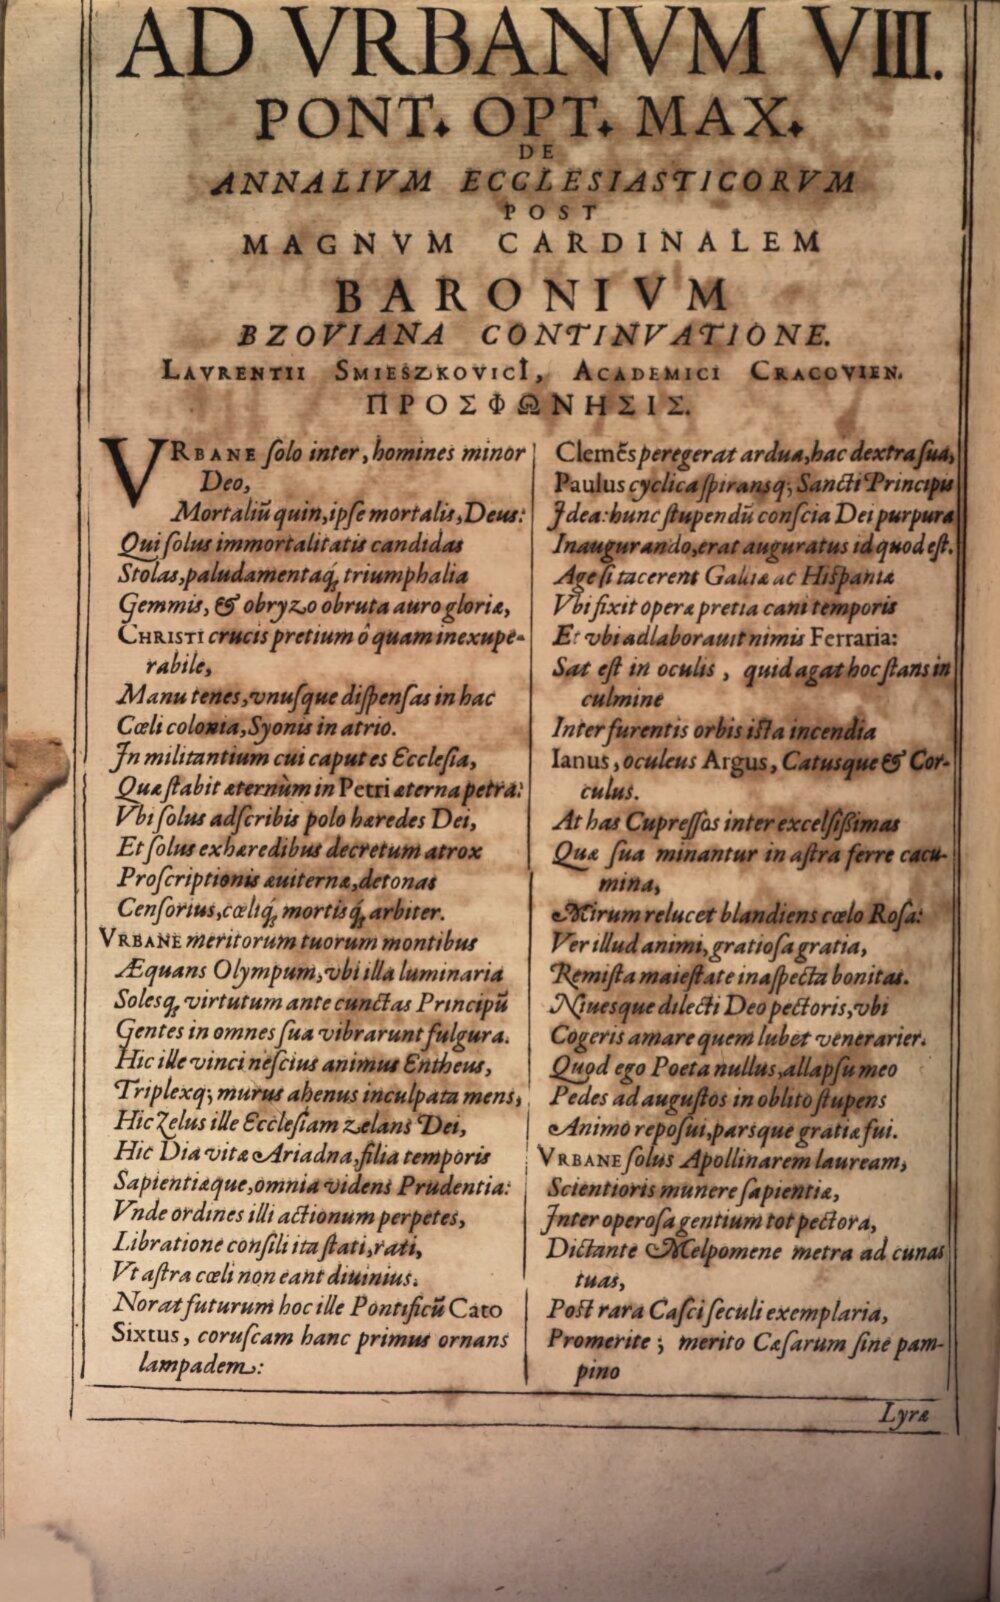 AD VRBANVM VIII.
PONT. OPT. MAX.
DE
ANNALIVM ECCLESIASTICORVM
POST
MAGNVM CARDINALEM
BARONIVM
BZOVIANA CONTINVATIONE.
LAVRENTII SMIESZKOVICI, ACADEMICI CRACOVIEN.
ΠΡΟΣΦΩΝΗΣΙΣ.
VRBANE ſolo inter, homines minor
Deo,
Mortaliũ quin, ipſe mortalis, Deus:
Qui ſolus immortalitatis candidas
Stolas, paludamentaq́; triumphalia
Gemmis, & obryzo obruta auro gloriæ,
CHRISTI crucis pretium ô quam inexupe-
rabile,
Manu tenes, vnuſque diſpenſas in hac
Cœli colonia, Syonis in atrio.
In militantium cui caput es Eccleſia,
Quæ ſtabit æternùm in Petri æterna petra:
Vbi ſolus adſcribis polo hæredes Dei,
Et ſolus exhæredibus decretum atrox
Proſcriptionis æuiternæ, detonas
Cenſorius, cœliq́; mortisq́; arbiter.
VRBANE meritorum tuorum montibus
Æquans Olympum, vbi illa luminaria
Solesq́; virtutum ante cunctas Principũ
Gentes in omnes ſua vibrarunt fulgura.
Hic ille vinci neſcius animus Entheus,
Triplexq; murus ahenus inculpata mens,
Hic Zelus ille Eccleſiam zelans Dei,
Hic Dia vitæ Ariadna, filia temporis
Sapientiæque, omnia videns Prudentia:
Vnde ordines illi actionum perpetes,
Libratione conſili ita ſtati, rati,
Vt aſtra cœli non eant diuinius.
Norat futurum hoc ille Pontificũ Cato
Sixtus, coruſcam hanc primus ornans
lampadem:
Clemẽs peregerat ardua, hac dextra ſua,
Paulus cyclica ſpiransq; Sancti Principis
Idea: hunc ſtupendũ conſcia Dei purpura
Inaugurando, erat auguratus id quod eſt.
Age ſi tacerent Galliæ ac Hiſpaniæ
Vbi fixit operæ pretia cani temporis
Et vbi adlaborauit nimis Ferraria:
Sat eſt in oculis, quid agat hoc ſtans in
culmine
Inter furentis orbis iſta incendia
Ianus, oculeus Argus, Catusque & Cor-
culus.
At has Cupreſſos inter excelſißimas
Quæ ſua minantur in aſtra ferre cacu-
mina,
Mirum relucet blandiens cœlo Roſa:
Ver illud animi, gratioſa gratia,
Remiſta maieſtate inaſpecta bonitas.
Niuesque dilecti Deo pectoris, vbi
Cogeris amare quem lubet venerarier.
Quod ego Poeta nullus, allapſu meo
Pedes ad auguſtos in oblito ſtupens
Animo repoſui, parsque gratiæ fui.
VRBANE ſolus Apollinarem lauream,
Scientioris munere ſapientiæ,
Inter operoſa gentium tot pectora,
Dictante Melpomene metra ad cunas
tuas,
Poſt rara Caſci ſeculi exemplaria,
Promerite; merito Cæſarum ſine pam-
pino
Lyræ